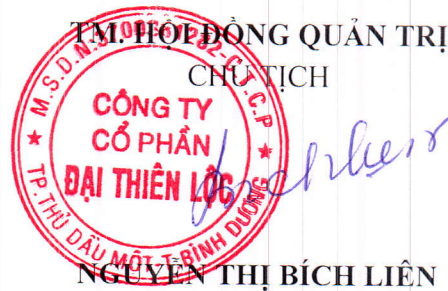 TM. HỘI ĐỒNG QUẢN TRỊ
CHỦ TỊCH
CÔNG TY
CỔ PHẦN
ĐẠI THIÊN LỘC
TP.THỦ DẦU MỘT-T.BÌNH DƯƠNG
NGUYỄN THỊ BÍCH LIÊN